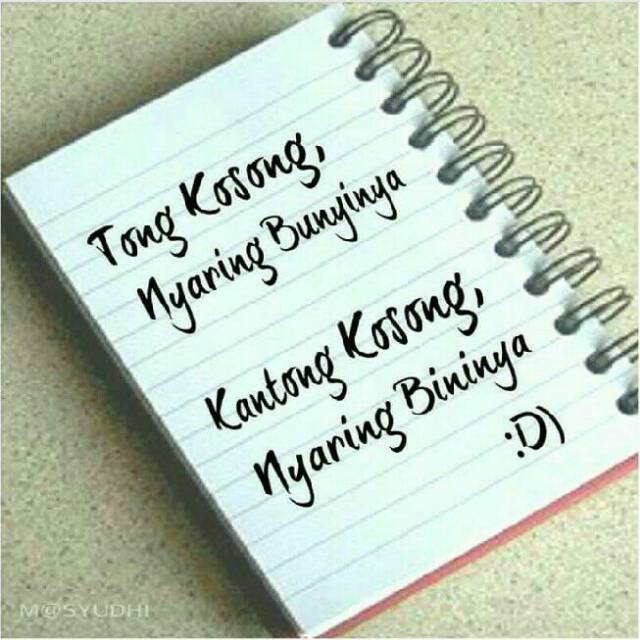 Tong Kosong,
Nyaring Bunyinya
Kantong Kosong,
Nyaring Bininya
:D)
M@SYUDHI